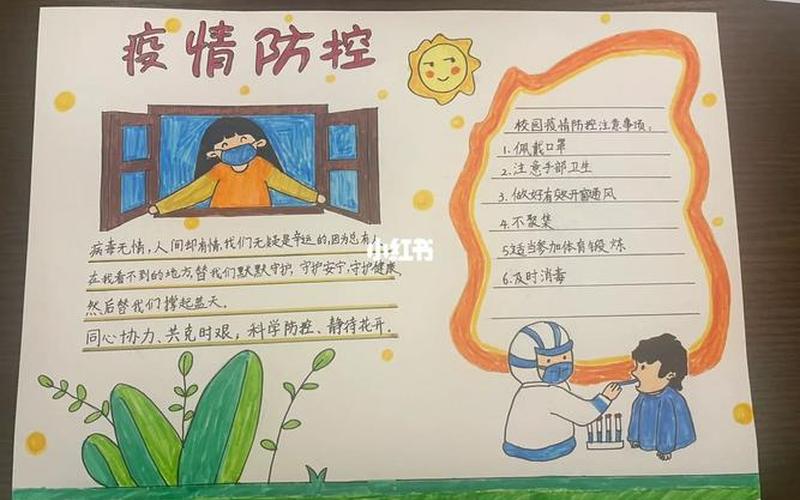 疫情防控
病毒无情，人间却有情，我们无疑是幸运的，因为总有人
在我看不到的地方，替我们默默守护，守护安宁，守护健康
然后替我们撑起蓝天。
同心协力、共克时艰，科学防控、静待花开。
小红书
校园疫情防控注意事项：
1.佩戴口罩
2.注意手部卫生
3.做好有效开窗通风
4.不聚集
5适当参加体育锻炼
6.及时消毒